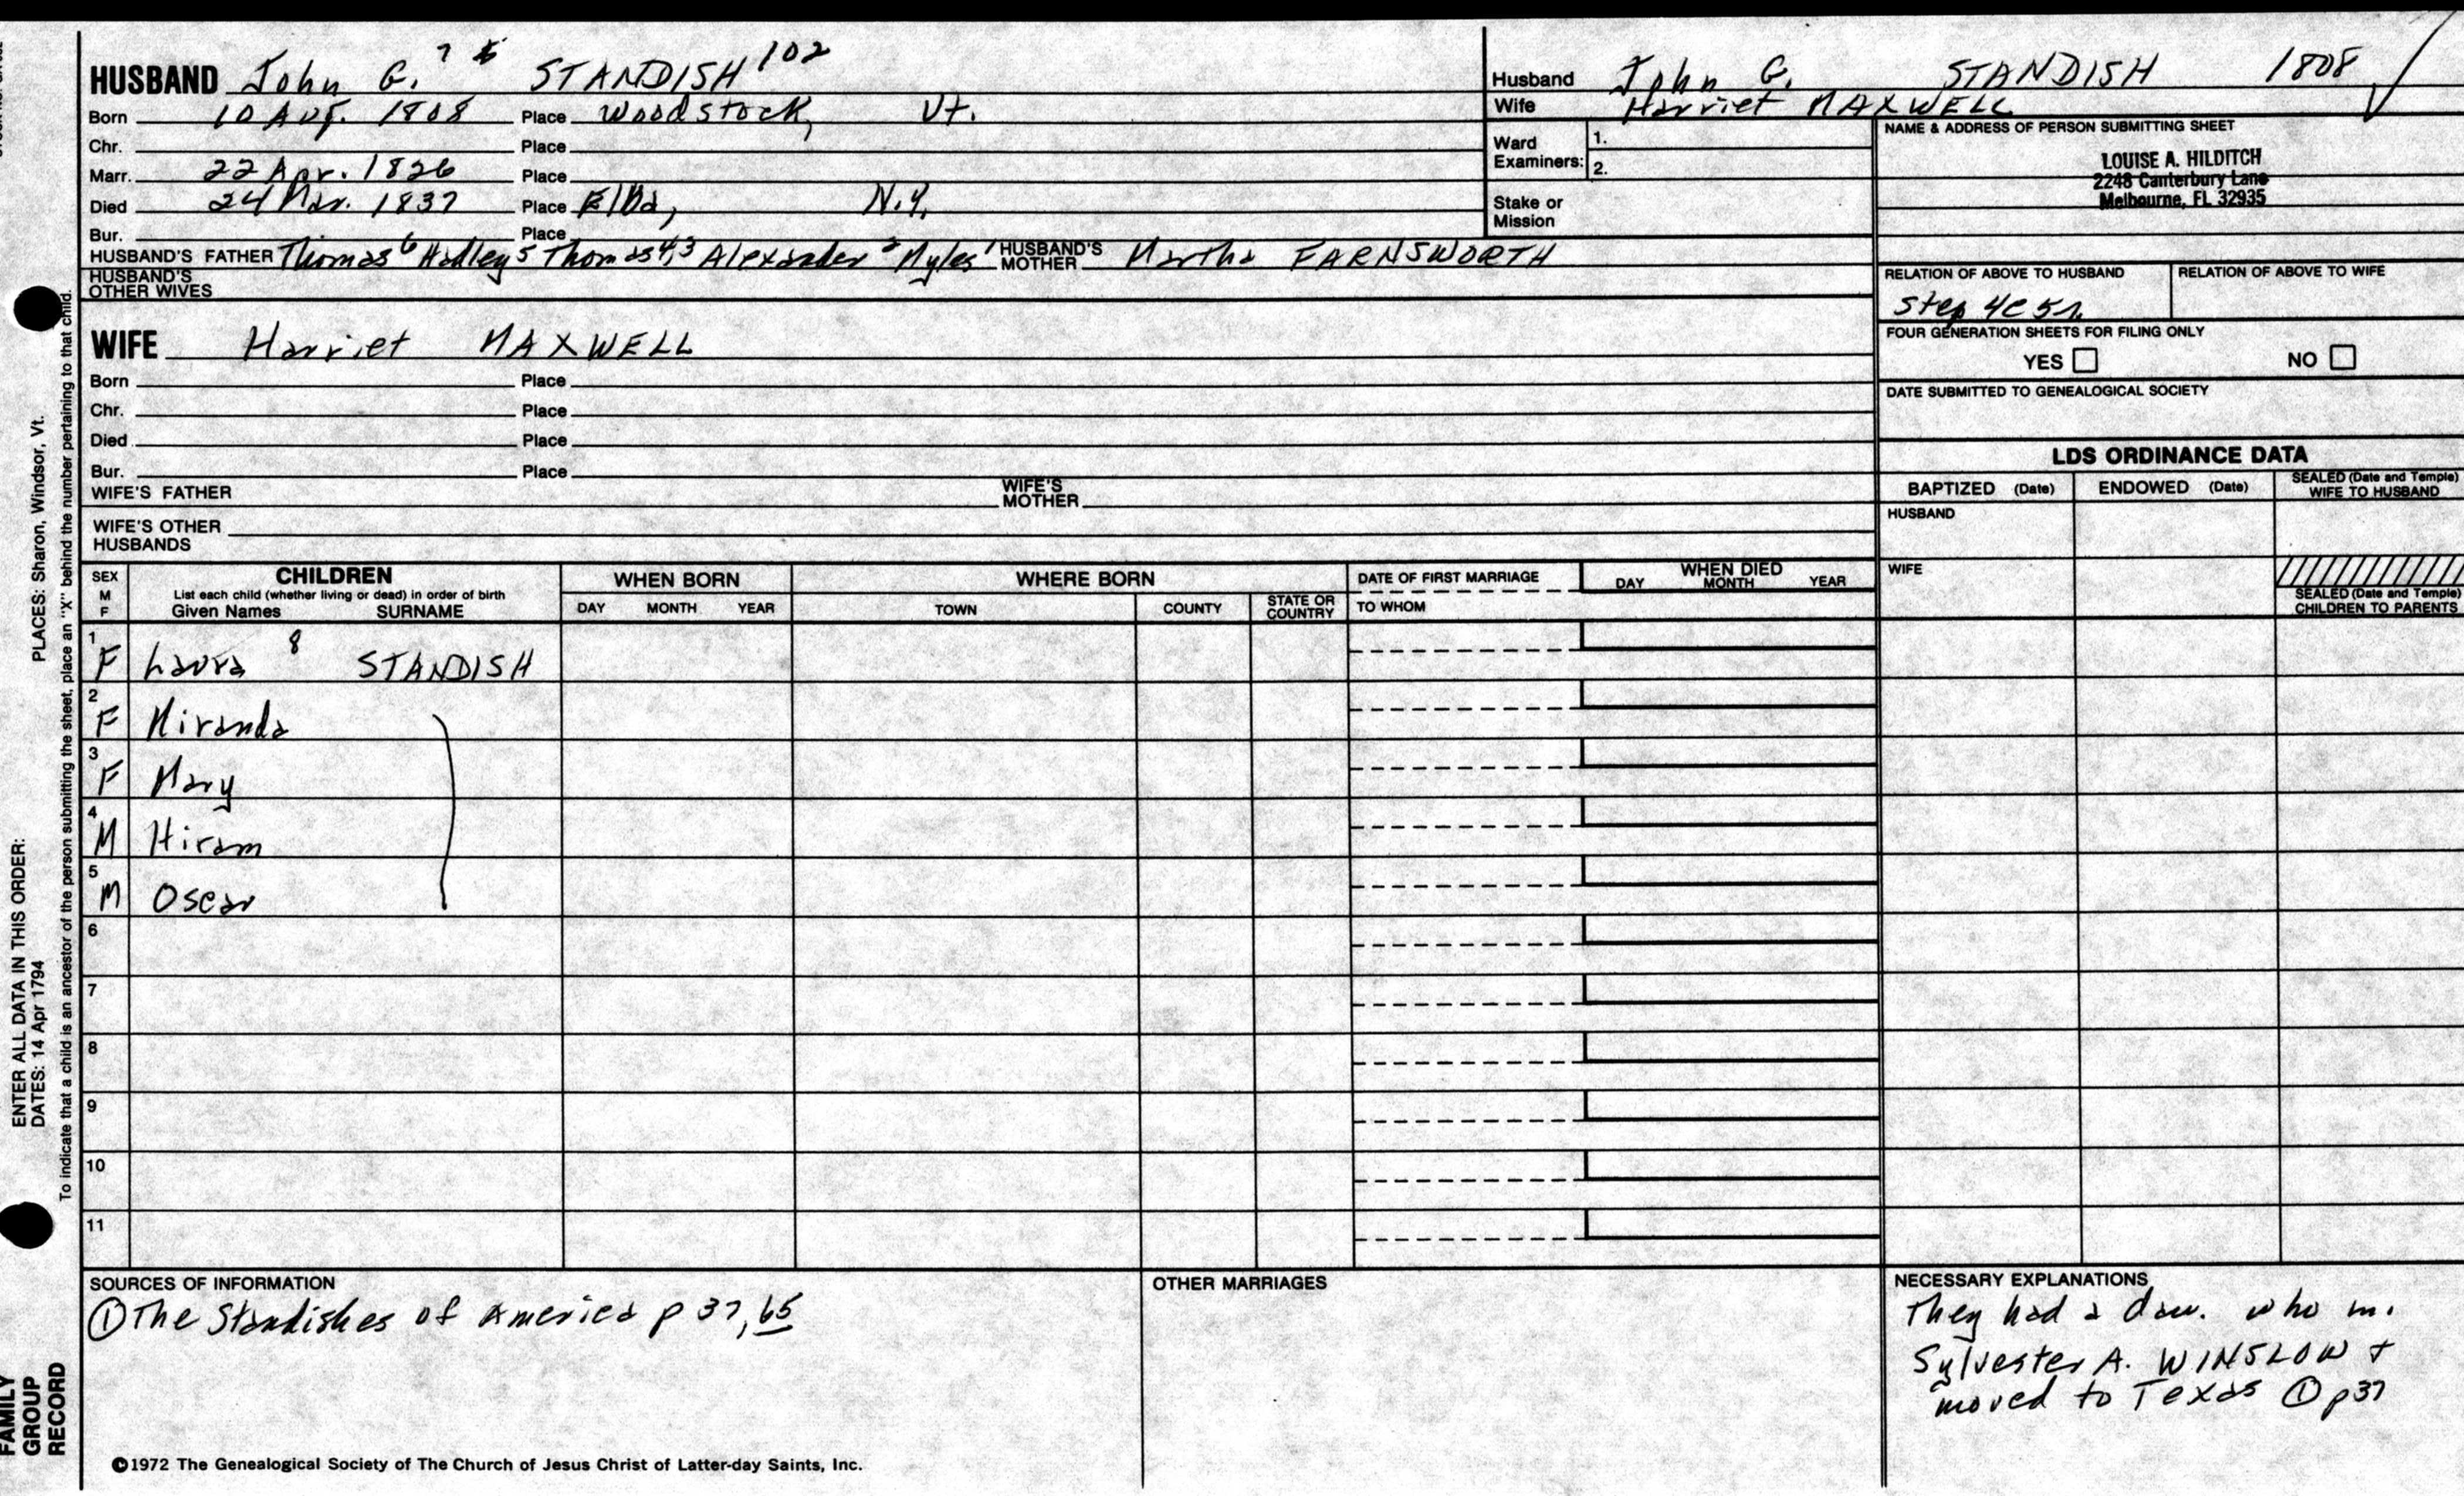 HUSBAND John G. 7 STANDISH 102
Born 10 Aug. 1808 Place Woodstock, Vt.
Chr. Place
Marr. 22 Apr. 1826 Place
Died 24 Mar. 1837 Place Elba, N.Y.
Bur. Place
HUSBAND'S FATHER Thomas 6 Hadley 5 Thomas 4,3 Alexander 2 Myles 1 HUSBAND'S MOTHER Martha FARNSWORTH
HUSBAND'S OTHER WIVES
WIFE Harriet MAXWELL
Born Place
Chr. Place
Died Place
Bur. Place
WIFE'S FATHER WIFE'S MOTHER
WIFE'S OTHER HUSBANDS
Husband John G. STANDISH 1808
Wife Harriet MAXWELL
Ward Examiners: 1.
2.
Stake or Mission
NAME & ADDRESS OF PERSON SUBMITTING SHEET
LOUISE A. HILDITCH
2248 Canterbury Lane
Melbourne, FL 32935
RELATION OF ABOVE TO HUSBAND RELATION OF ABOVE TO WIFE
Step 4C 5r.
FOUR GENERATION SHEETS FOR FILING ONLY
YES NO
DATE SUBMITTED TO GENEALOGICAL SOCIETY
LDS ORDINANCE DATA
BAPTIZED (Date) ENDOWED (Date) SEALED (Date and Temple) WIFE TO HUSBAND
HUSBAND
WIFE
SEALED (Date and Temple) CHILDREN TO PARENTS
SEX M F
CHILDREN
List each child (whether living or dead) in order of birth
Given Names SURNAME
WHEN BORN
DAY MONTH YEAR
WHERE BORN
TOWN COUNTY STATE OR COUNTRY
DATE OF FIRST MARRIAGE
TO WHOM
WHEN DIED
DAY MONTH YEAR
1 F Laura 8 STANDISH
2 F Miranda
3 F Mary
4 M Hiram
5 M Oscar
6
7
8
9
10
11
SOURCES OF INFORMATION
① The Standishes of America p 37, 65
OTHER MARRIAGES
NECESSARY EXPLANATIONS
They had a dau. who m.
Sylvester A. WINSLOW +
moved to Texas ① p37
©1972 The Genealogical Society of The Church of Jesus Christ of Latter-day Saints, Inc.
PLACES: Sharon, Windsor, Vt.
ENTER ALL DATA IN THIS ORDER:
DATES: 14 Apr 1794
To indicate that a child is an ancestor of the person submitting the sheet, place an "X" behind the number pertaining to that child.
FAMILY
GROUP
RECORD